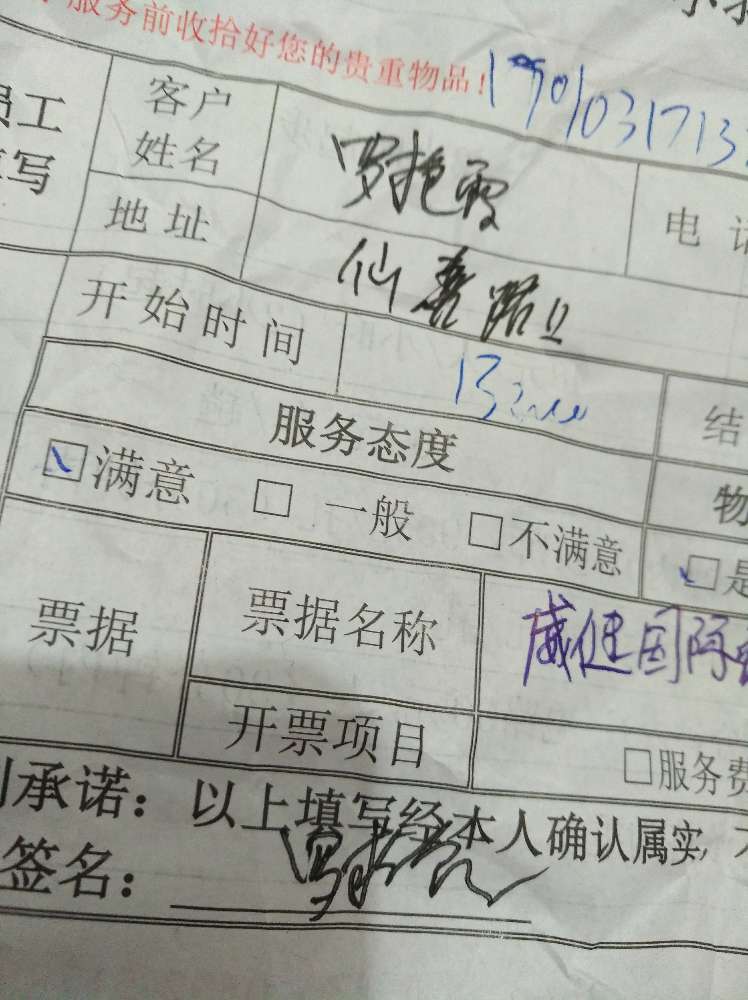 服务前收拾好您的贵重物品!
员工
填写
客户
姓名
罗艳霞
电话
地址
仙
路
开始时间
结
服务态度
物
满意 □ 一般 □ 不满意
□是
票据
票据名称
威健国际
开票项目
□服务费
承诺: 以上填写经本人确认属实,
签名: